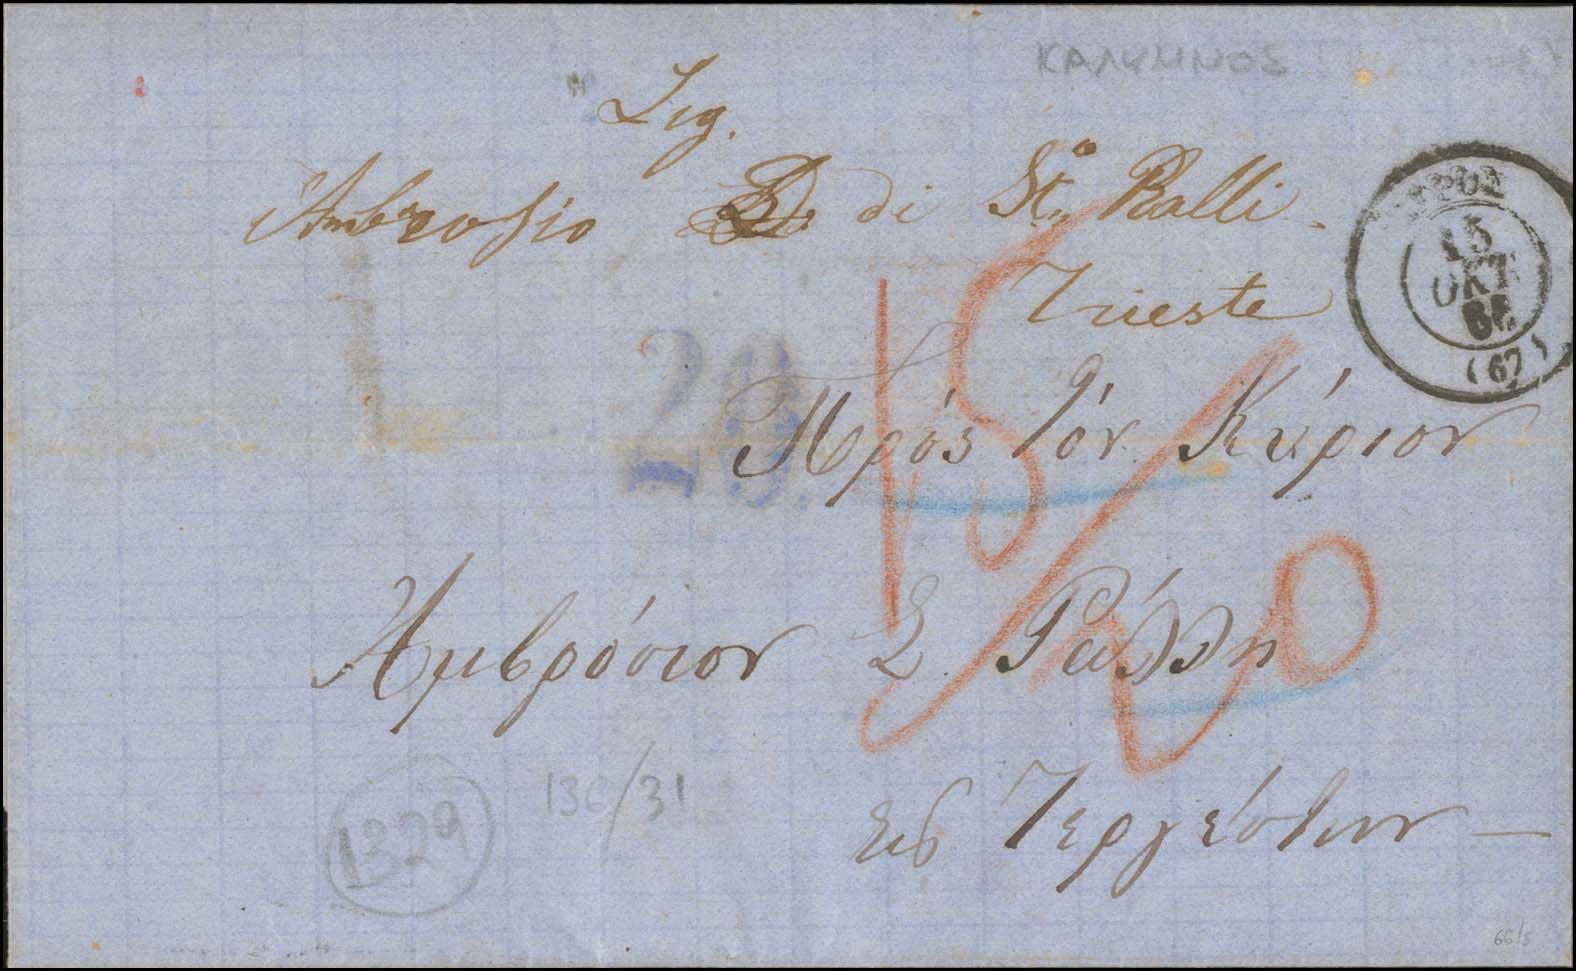 ΚΑΛΥΜΝΟΣ
Sig.
Ambrosio di St.º Ralli
Trieste
15
ΟΚΤ
(67)
20
15/20
Πρὸς τὸν Κύριον
Ἀμβρόσιον Σ. Ράλλη
εἰς Τεργέστην
1329
136/31
66/5